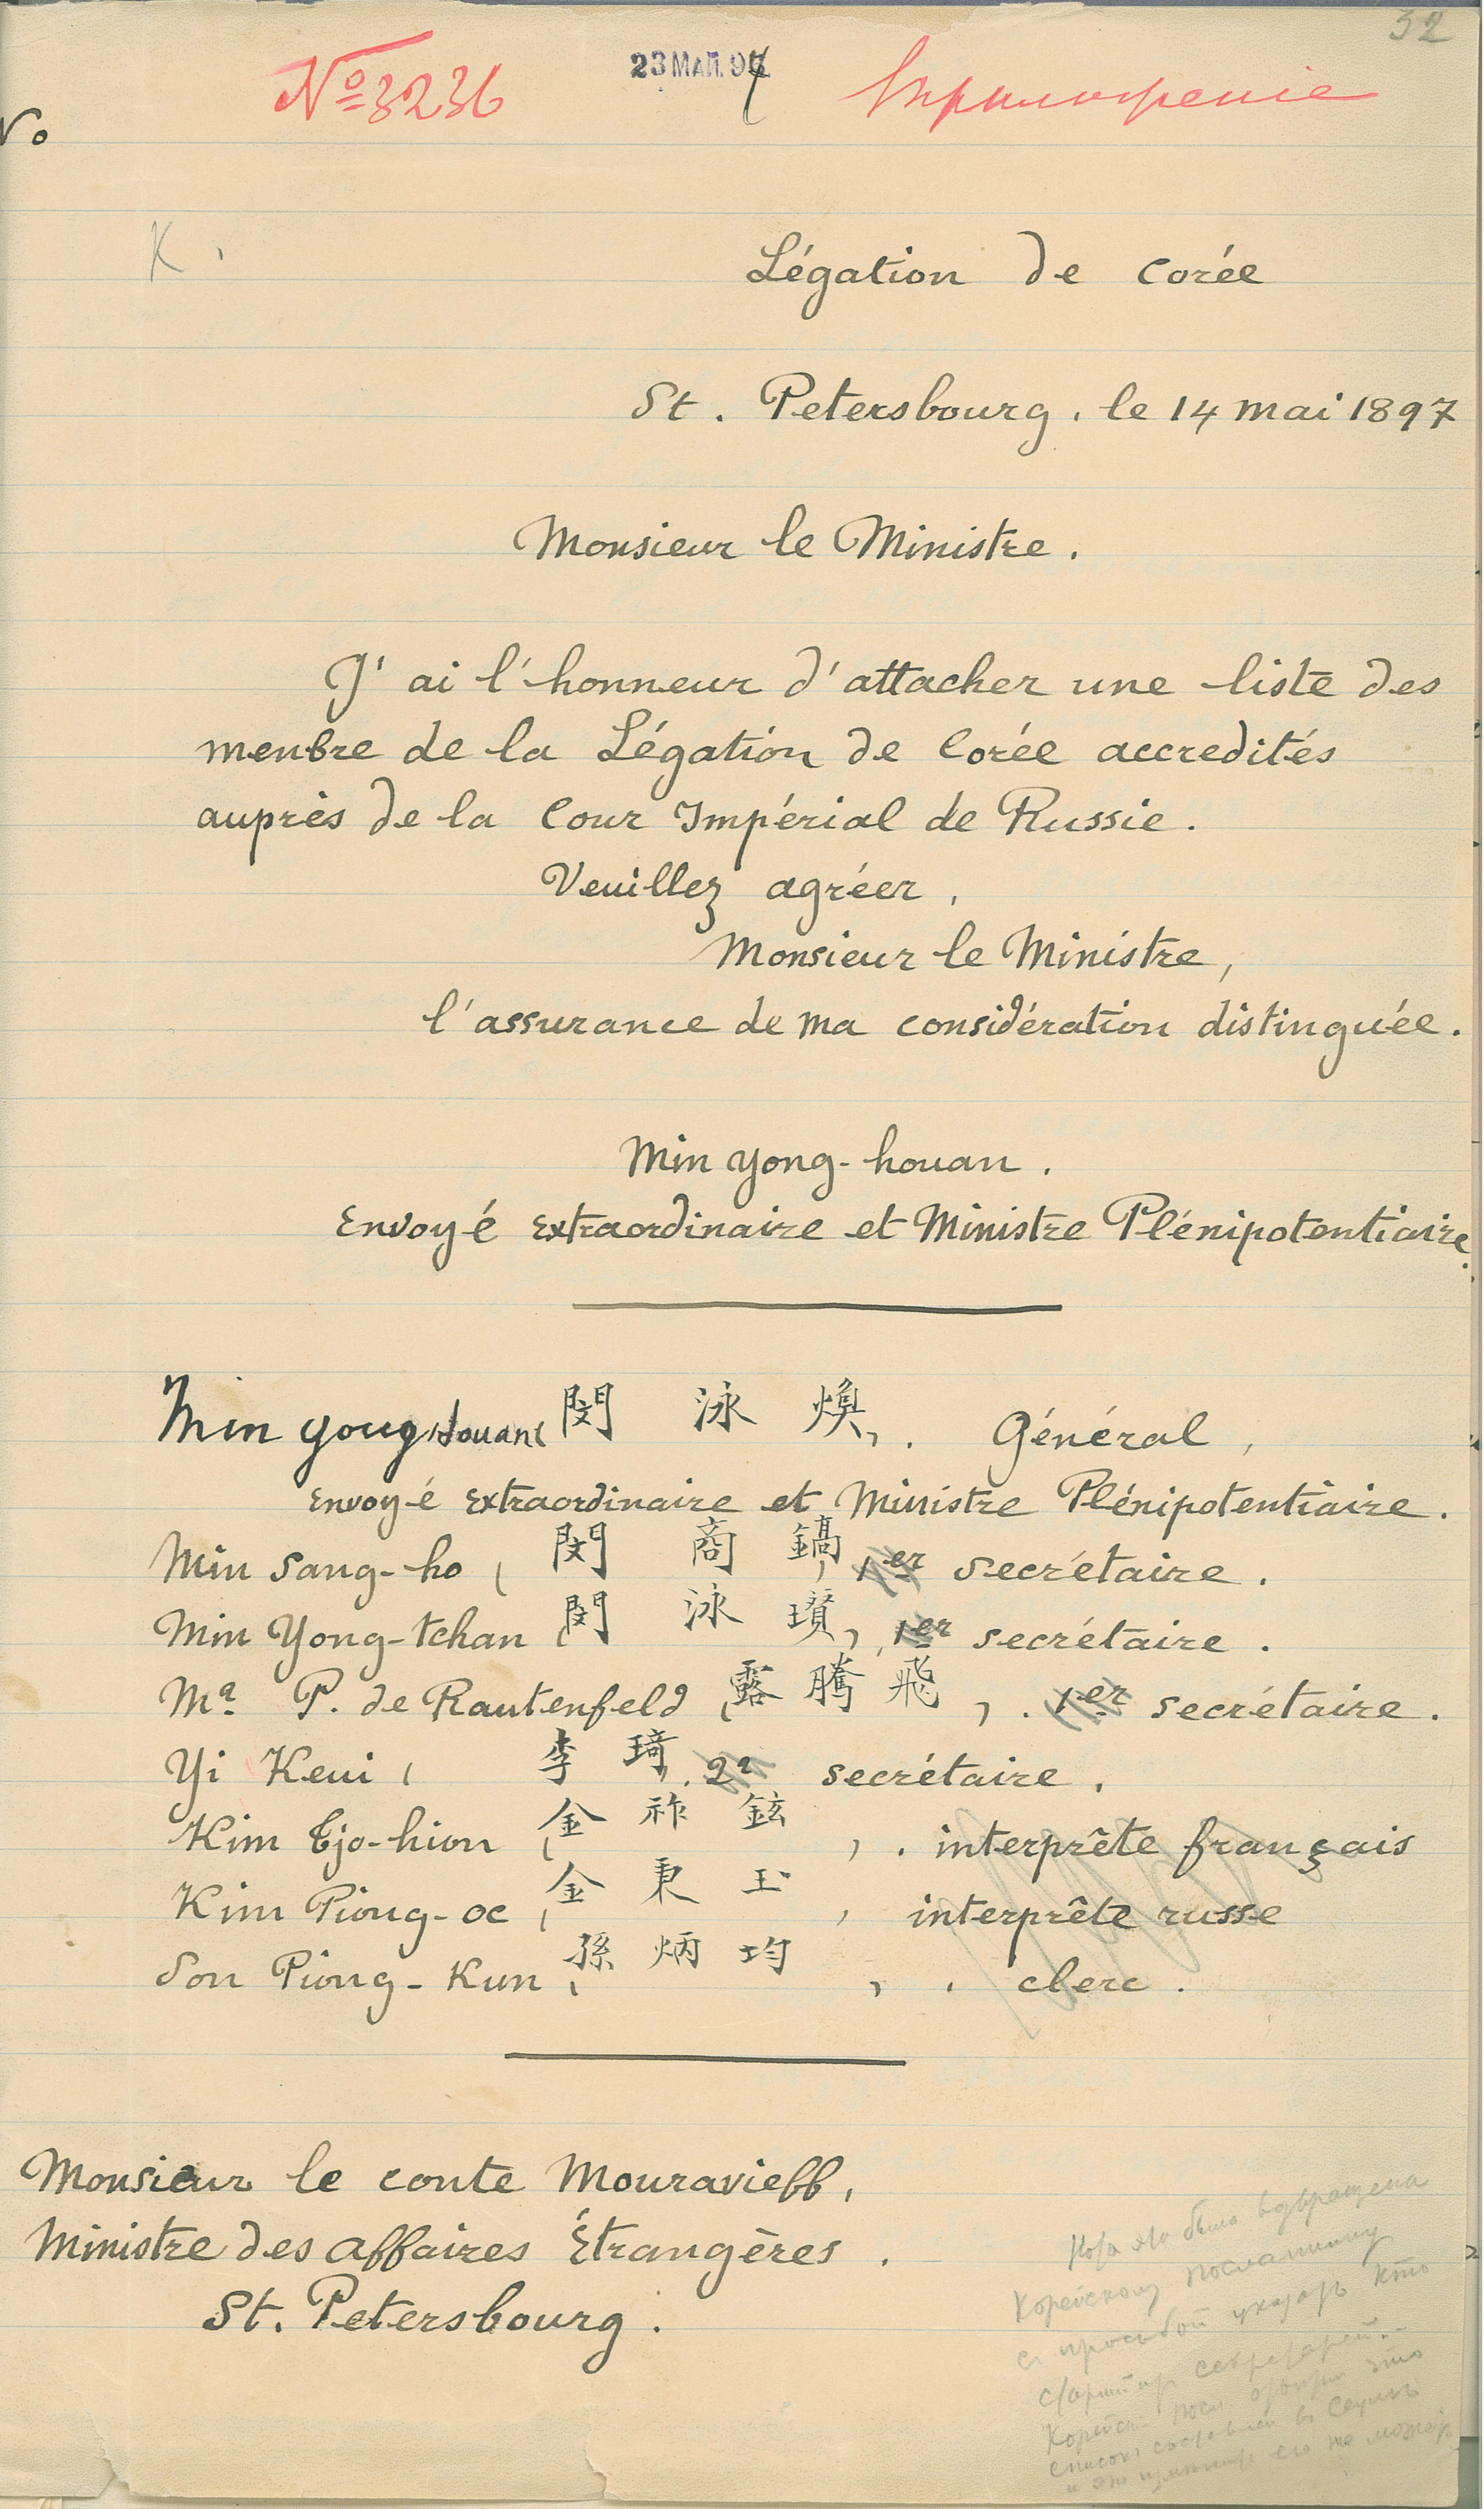 32
№ 3236
23 МАЙ. 97
No
К.
Légation de Corée
St. Petersbourg, le 14 mai 1897
Monsieur le Ministre.
J'ai l'honneur d'attacher une liste des
menbre de la Légation de Corée accredités
auprès de la Cour Impérial de Russie.
Veuillez agréer,
Monsieur le Ministre,
l'assurance de ma considération distinguée.
Min Yong-houan.
Envoyé Extraordinaire et Ministre Plénipotentiaire.
Min Yong Houan, 閔泳煥, . Général,
Envoyé Extraordinaire et Ministre Plénipotentiaire.
Min Sang-ho, 閔商鎬, 1er secrétaire.
Min Yong-tchan, 閔泳瓚, 1er secrétaire.
Mr. P. de Rautenfeld, 露騰飛, . 1er secrétaire.
Yi Keui, 李琦, . 2e secrétaire.
Kim Tjo-hion, 金祚鉉, . interprête français
Kim Piong-oc, 金秉玉, interprête russe
Son Piong-Kun, 孫炳均, . clerc.
Monsieur le conte Mouravieff,
Ministre des Affaires Étrangères.
St. Petersbourg.
была возвращена
Корейскому посланнику
с просьбой указать кто